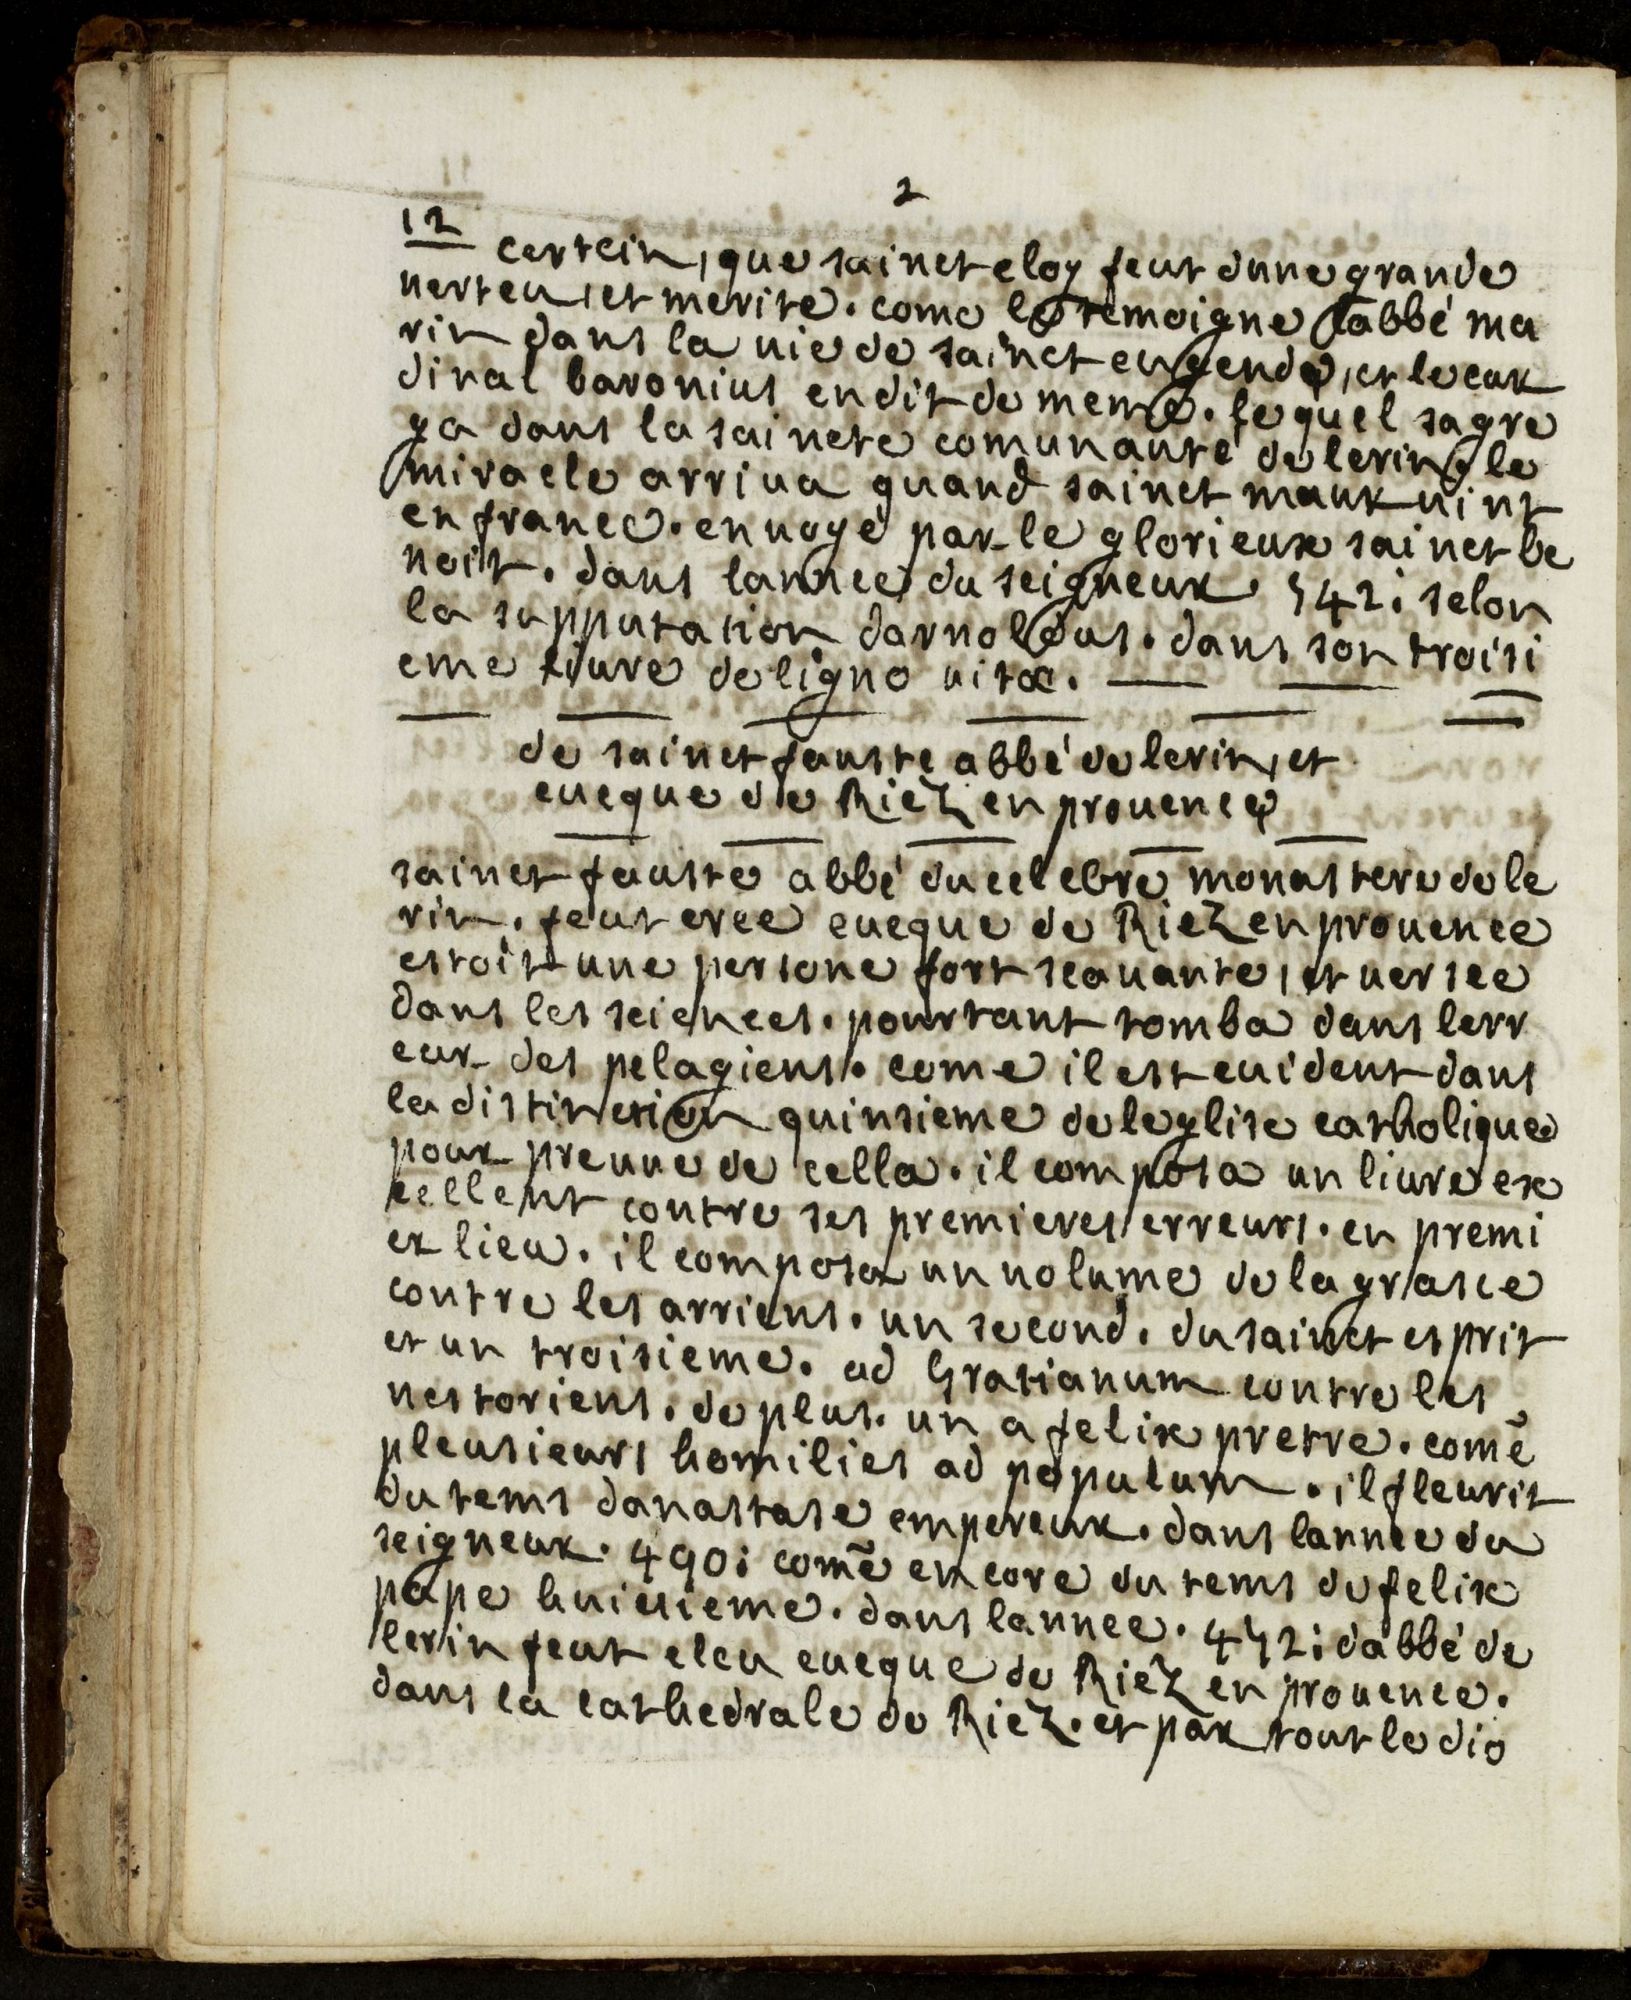 2
12
certein, que sainct eloy feut dune grande
uerteu, et merite. come le temoigne labbé ma
rin dans la uie de sainct eugende, et le car
dinal baronius en dit de meme. lequel sagre
ga dans la saincte comunauté de lerin, le
miracle arriua quand sainct maur uint
en france. enuoyé par le glorieux sainct be
noit. dans lannee du seigneur. 542: selon
la supputation darnoldus. dans son troisi
eme liure de ligno uitæ.
de sainct fauste abbé de lerin, et
eueque de Riez en prouence
sainct fauste abbé du celebre monastere de le
rin. feut creé eueque de Riez en prouence
estoit une persone fort scauante, et uersee
dans les sciences. pourtant tomba dans lerr
eur des pelagiens. come il est euident dans
la distinction quinsieme de leglise catholique
pour preuue de cella. il composa un liure ex
cellent contre ses premieres erreurs. en premi
er lieu. il composa un uolume de la grasce
contre les arriens. un second. du sainct esprit
et un troisieme. ad Gratianum contre les
nestoriens. de plus. un a felix pretre. comē
pleusieurs homilies ad populum. il fleurit
du tems danastase empereur. dans lannee du
seigneur. 490: comē encore du tems de felix
pape huictieme. dans lannee. 452: dabbé de
lerin feut eleu eueque de Riez en prouence.
dans la cathedrale de Riez. et par tout le dio